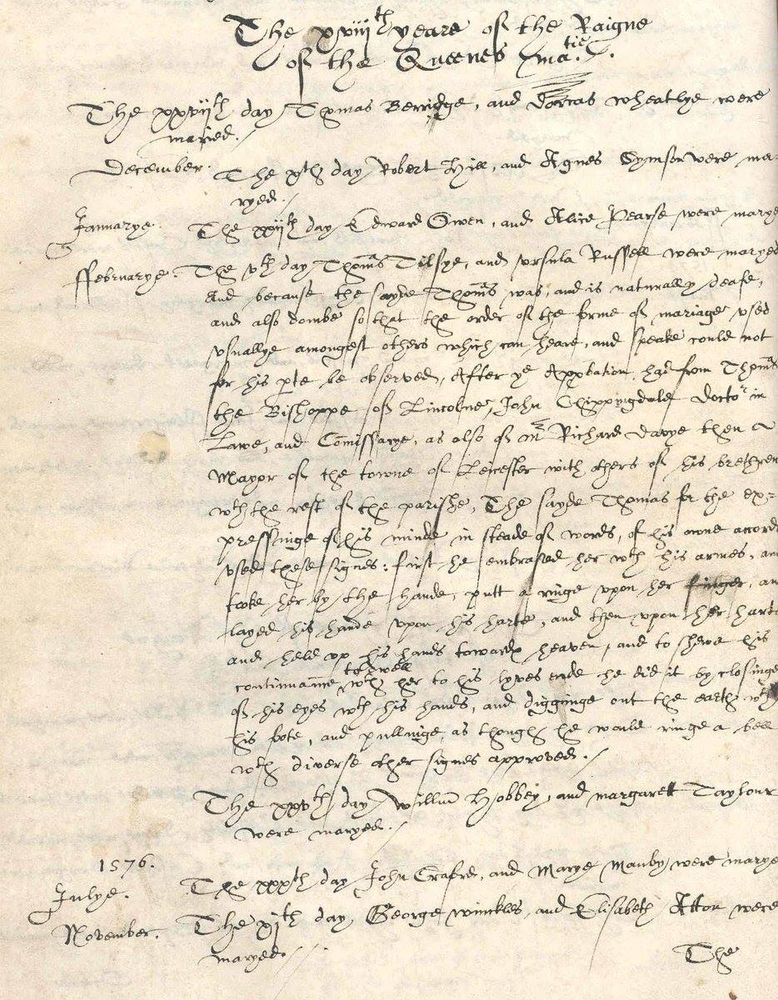 The xviiith yeare of the Raigne
of the Queenes matie.
The xxviith day Thomas Berridge, and Dorcas wheatlye were
maried.
December. The xth day Robert Hill, and Agnes Symson were ma
ryed.
Januarye. The day Edward Owen, and Alice Pearse were marye
ffebruarye. The vth day Thoms Tilsye, and vrsula Russell were maryed
And because, the sayde Thoms was, and is naturally deafe,
and also dombe, so that the order of the forme of mariage vsed
vsuallye amongest others which can heare, and speake could not
for his pte be observed, After ye Appbation had from Thoms
the Bishoppe of Lincolne, John Chippyngdale doctor in
Lawe, and Comissarye, as also of mr Richard Davye then
Mayor of the towne of Leicester with others of his brethren
wth the rest of the parishe, The sayde Thomas for the ex=
pressinge of his minde in steade of words, of his owne accord
vsed these signes: first he embraced her wth his armes, an
tooke her by the hande, putt a ringe vpon her finger, an
layed his hande vpon his harte, and then vpon her hart
and held vp his hands towards heaven, and to shewe his
continuaunce to dwell wth her to his lyves ende he did it by closinge
of his eyes wth his hands, and digginge out the earth wth
his fote, and pullinge as though he would ringe a bell
wth diverse other signes approved.
The xxvth day Willm Hobbey, and margarett Taylour
were maryed.
1576.
Julye. The xxxth day John and Marye Manby were marye
November. The xith day, George winckles, and Elisabeth Atton were
maryed.
The